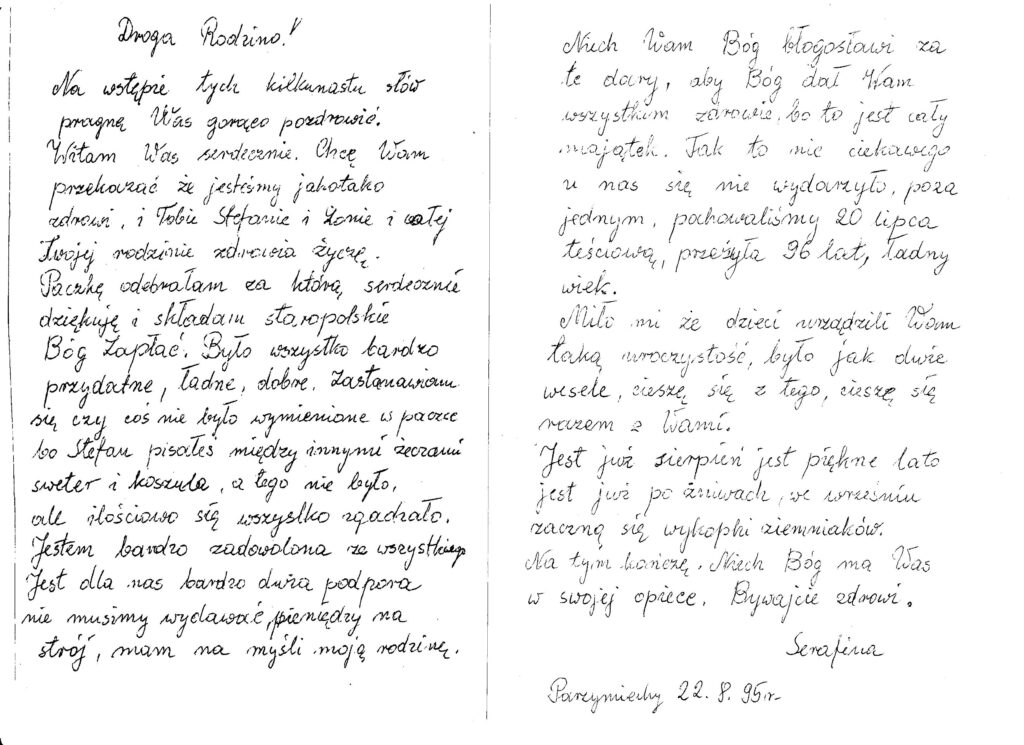 Droga Rodzino!
Na wstępie tych kilkunastu słów
pragnę Was gorąco pozdrowić.
Witam Was serdecznie. Chcę Wam
przekazać że jesteśmy jakotako
zdrowi, i Tobie Stefanie i Żonie i całej
Twojej rodzinie zdrowia życzę.
Paczkę odebrałam za którą serdecznie
dziękuję i składam staropolskie
Bóg Zapłać. Było wszystko bardzo
przydatne, ładne, dobre. Zastanawiam
się czy coś nie było wymienione w paczce
bo Stefan pisałeś między innymi żeczami
sweter i koszula, a tego nie było,
ale ilościowo się wszystko zgadzało.
Jestem bardzo zadowolona ze wszystkiego
Jest dla nas bardzo duża podpora
nie musimy wydawać pieniędzy na
strój, mam na myśli moją rodzinę.
Niech Wam Bóg błogosławi za
te dary, aby Bóg dał Wam
wszystkim zdrowie, bo to jest cały
majątek. Tak to nic ciekawego
u nas się nie wydarzyło, poza
jednym, pochowaliśmy 20 lipca
teściową, przeżyła 96 lat, ładny
wiek.
Miło mi że dzieci urządzili Wam
taką uroczystość, było jak duże
wesele, cieszę się z tego, cieszę się
razem z Wami.
Jest już sierpień jest piękne lato
jest już po żniwach, we wrześniu
zaczną się wykopki ziemniaków.
Na tym kończę. Niech Bóg ma Was
w swojej opiece. Bywajcie zdrowi.
Serafina
Parzymiechy 22. 8. 95r.